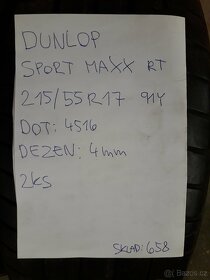 DUNLOP
SPORT MAXX RT
215/55R17 91Y
DOT: 4516
DEZEN: 4mm
2KS
SKLAD: 658
Bazoš.cz